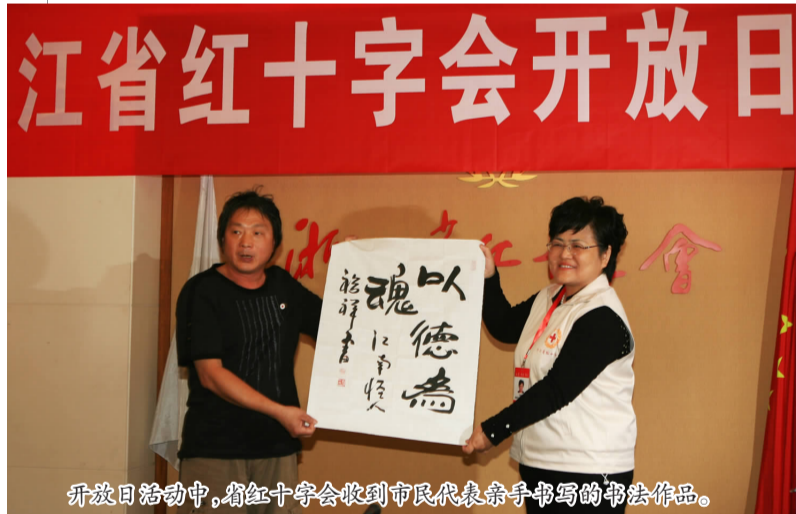 江省红十字会开放日
浙 省红十 会
以德为
魂
江南怪人
福祥书
开放日活动中，省红十字会收到市民代表亲手书写的书法作品。